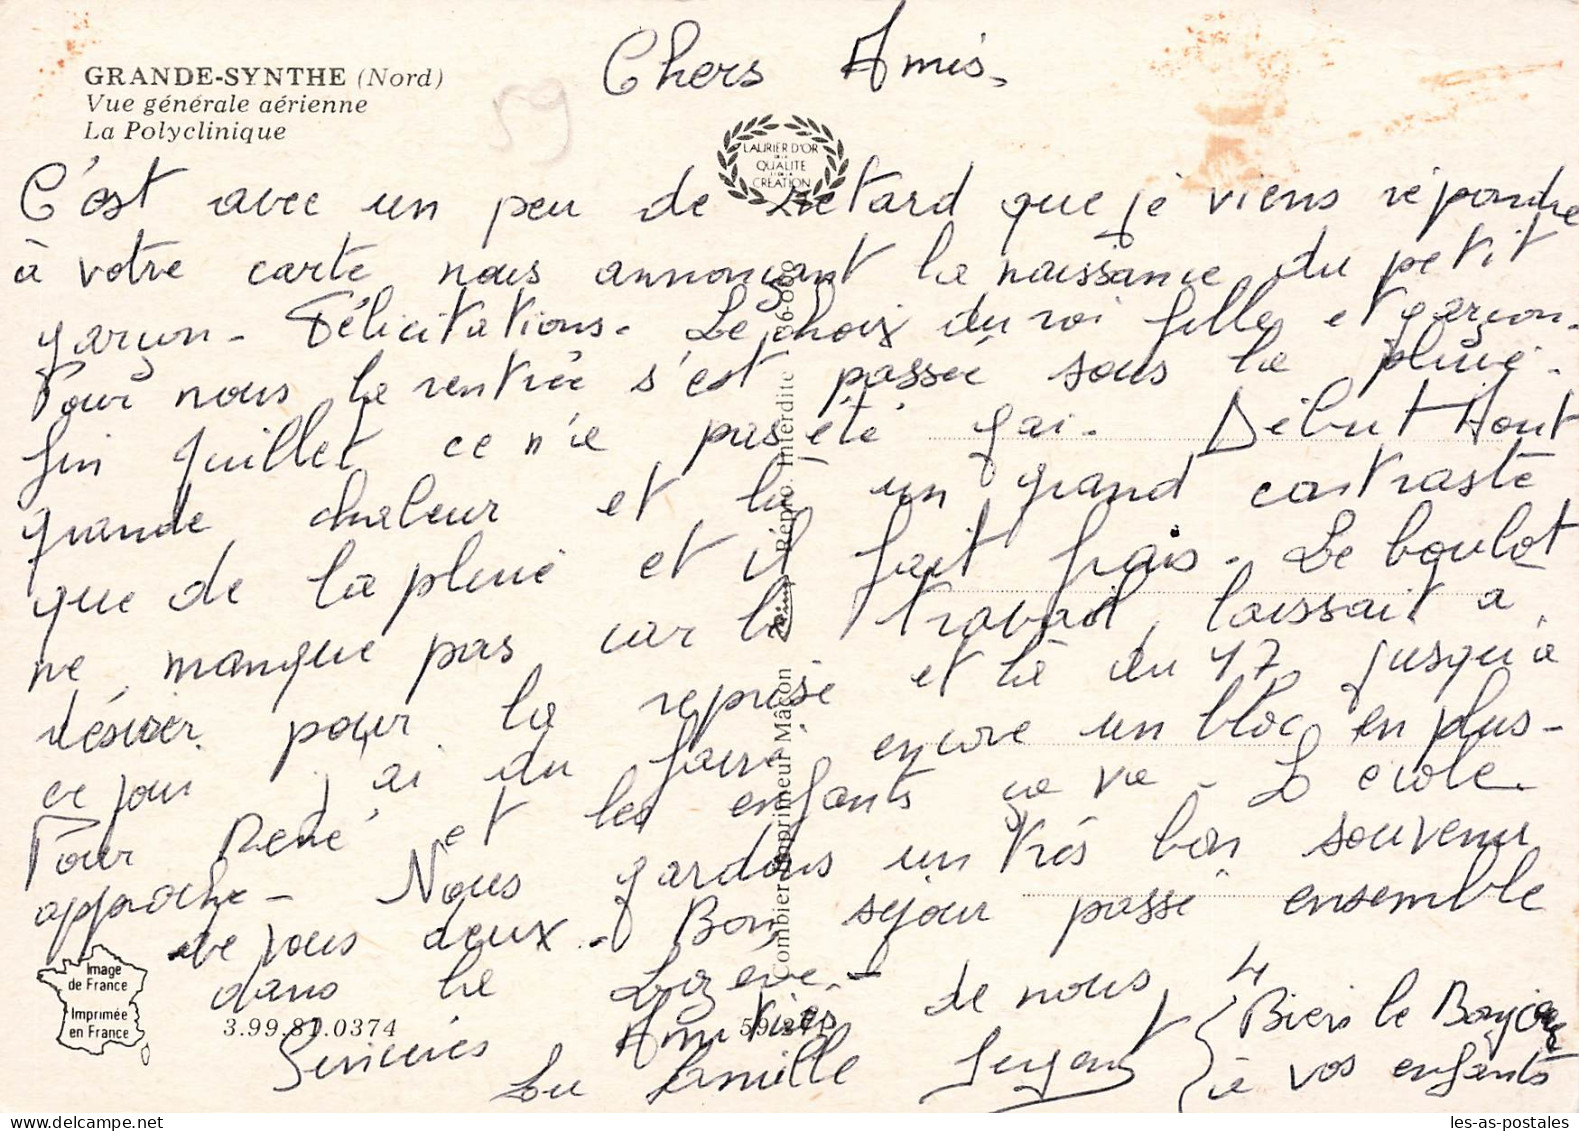 GRANDE-SYNTHE (Nord)
Vue générale aérienne
La Polyclinique
59
Chers Amis.
LAURIER D'OR
DE LA
QUALITE
CREATION
C'est avec un peu de retard que je viens répondre
à votre carte nous annonçant la naissance du petit
garçon - Félicitations. Le choix du roi fille et garçon.
Pour nous la rentrée s'est passée sous la pluie.
fin Juillet ce n'e pas été gai. Début Aout
grande chaleur et là un grand contraste
que de la pluie et il fait frais. Le boulot
ne manque pas car le travail laissait à
désirer pour la reprise et là du 17 jusqu'à
ce jour j'ai du faire encore un bloc en plus -
Pour René et les enfants ça va - L école
approche - Nous gardons un très bon souvenir
de vous deux - Bon séjour passé ensemble
dans la - de nous 4
Amitiés
Sincères
La famille
Biens le Bonjour
à vos enfants
Image
de France
Imprimée
en France
3.99.81.0374
59.271
Combier Imprimeur Mâcon
Répro. Interdite
36-000
les-as-postales